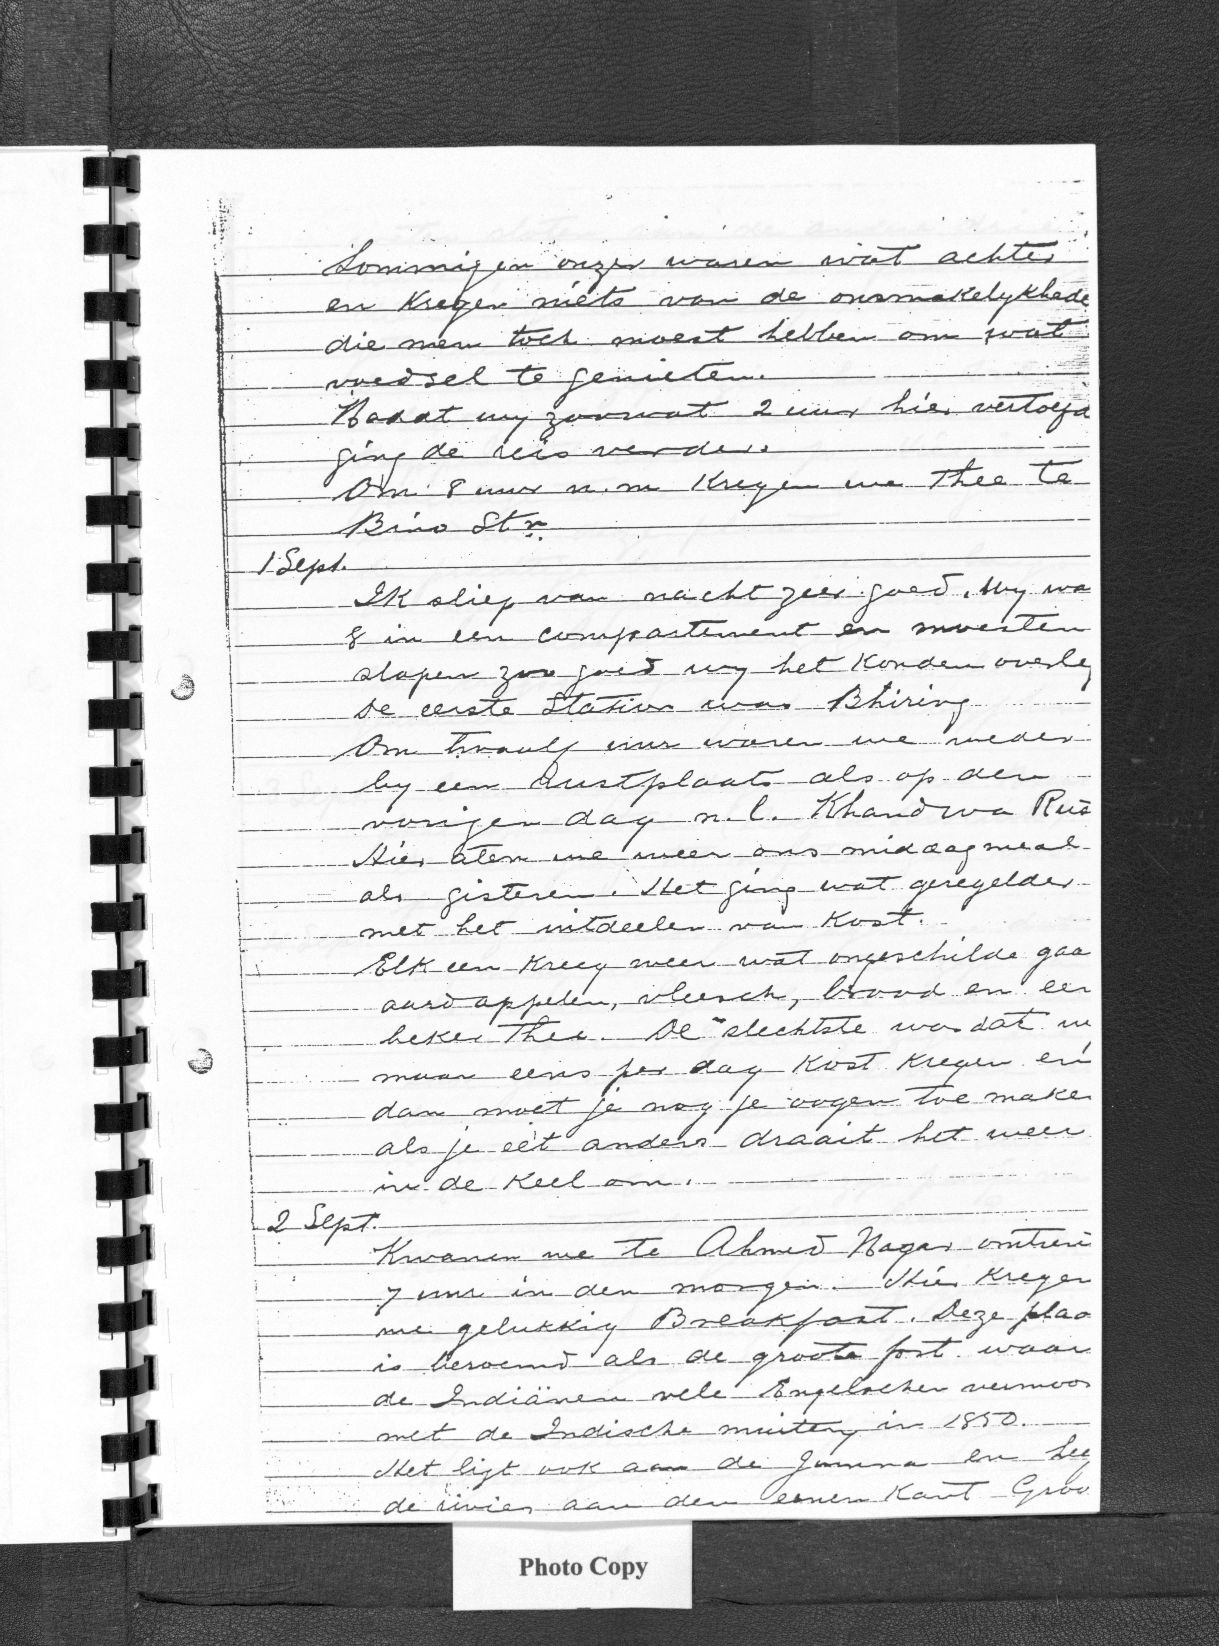 Sommigen onzer waren wat achter
en Kregen niets van de onsmakelykhede
die men toch moest hebben om wat
voedsel te genieten.
Nadat wy zoowat 2 uur hier vertoefd
ging de reis verder.
Om 8 uur n.m Kregen we Thee te
Bina Stn
1 Sept.
IK sliep van nacht zeer goed. Wy wa
8 in een compartement en moesten
slapen zoo goed wy het Konden overleg
De eerste Station was Bhiring
Om twaalf uur waren we weder
by een rustplaats als op den
vorigen dag n.l. Khandwa
Hier aten we weer ons middagmaal
als gisteren. Het ging wat geregelder
met het uitdeelen van Kost.
Elk een Kreeg weer wat ongeschilde gaa
aardappelen, vleesch, brood en een
beker Thee. De slechtste was dat w
maar eens per dag Kost Kregen en
dan moet je nog je oogen toe maken
als je eet anders draait het weer
in de Keel om.
2 Sept.
Kwamen we te Ahmed Nagar omtren
7 uur in den morgen. Hier Kregen
we gelukkig Breakfast. Deze plaa
is beroemd als de groote fort waar
de Indiänen vele Engelschen vermoor
met de Indische muitery in 1850.
Het ligt ook aan de Jumna en hee
de rivier aan den eenen Kant Groo
Photo Copy